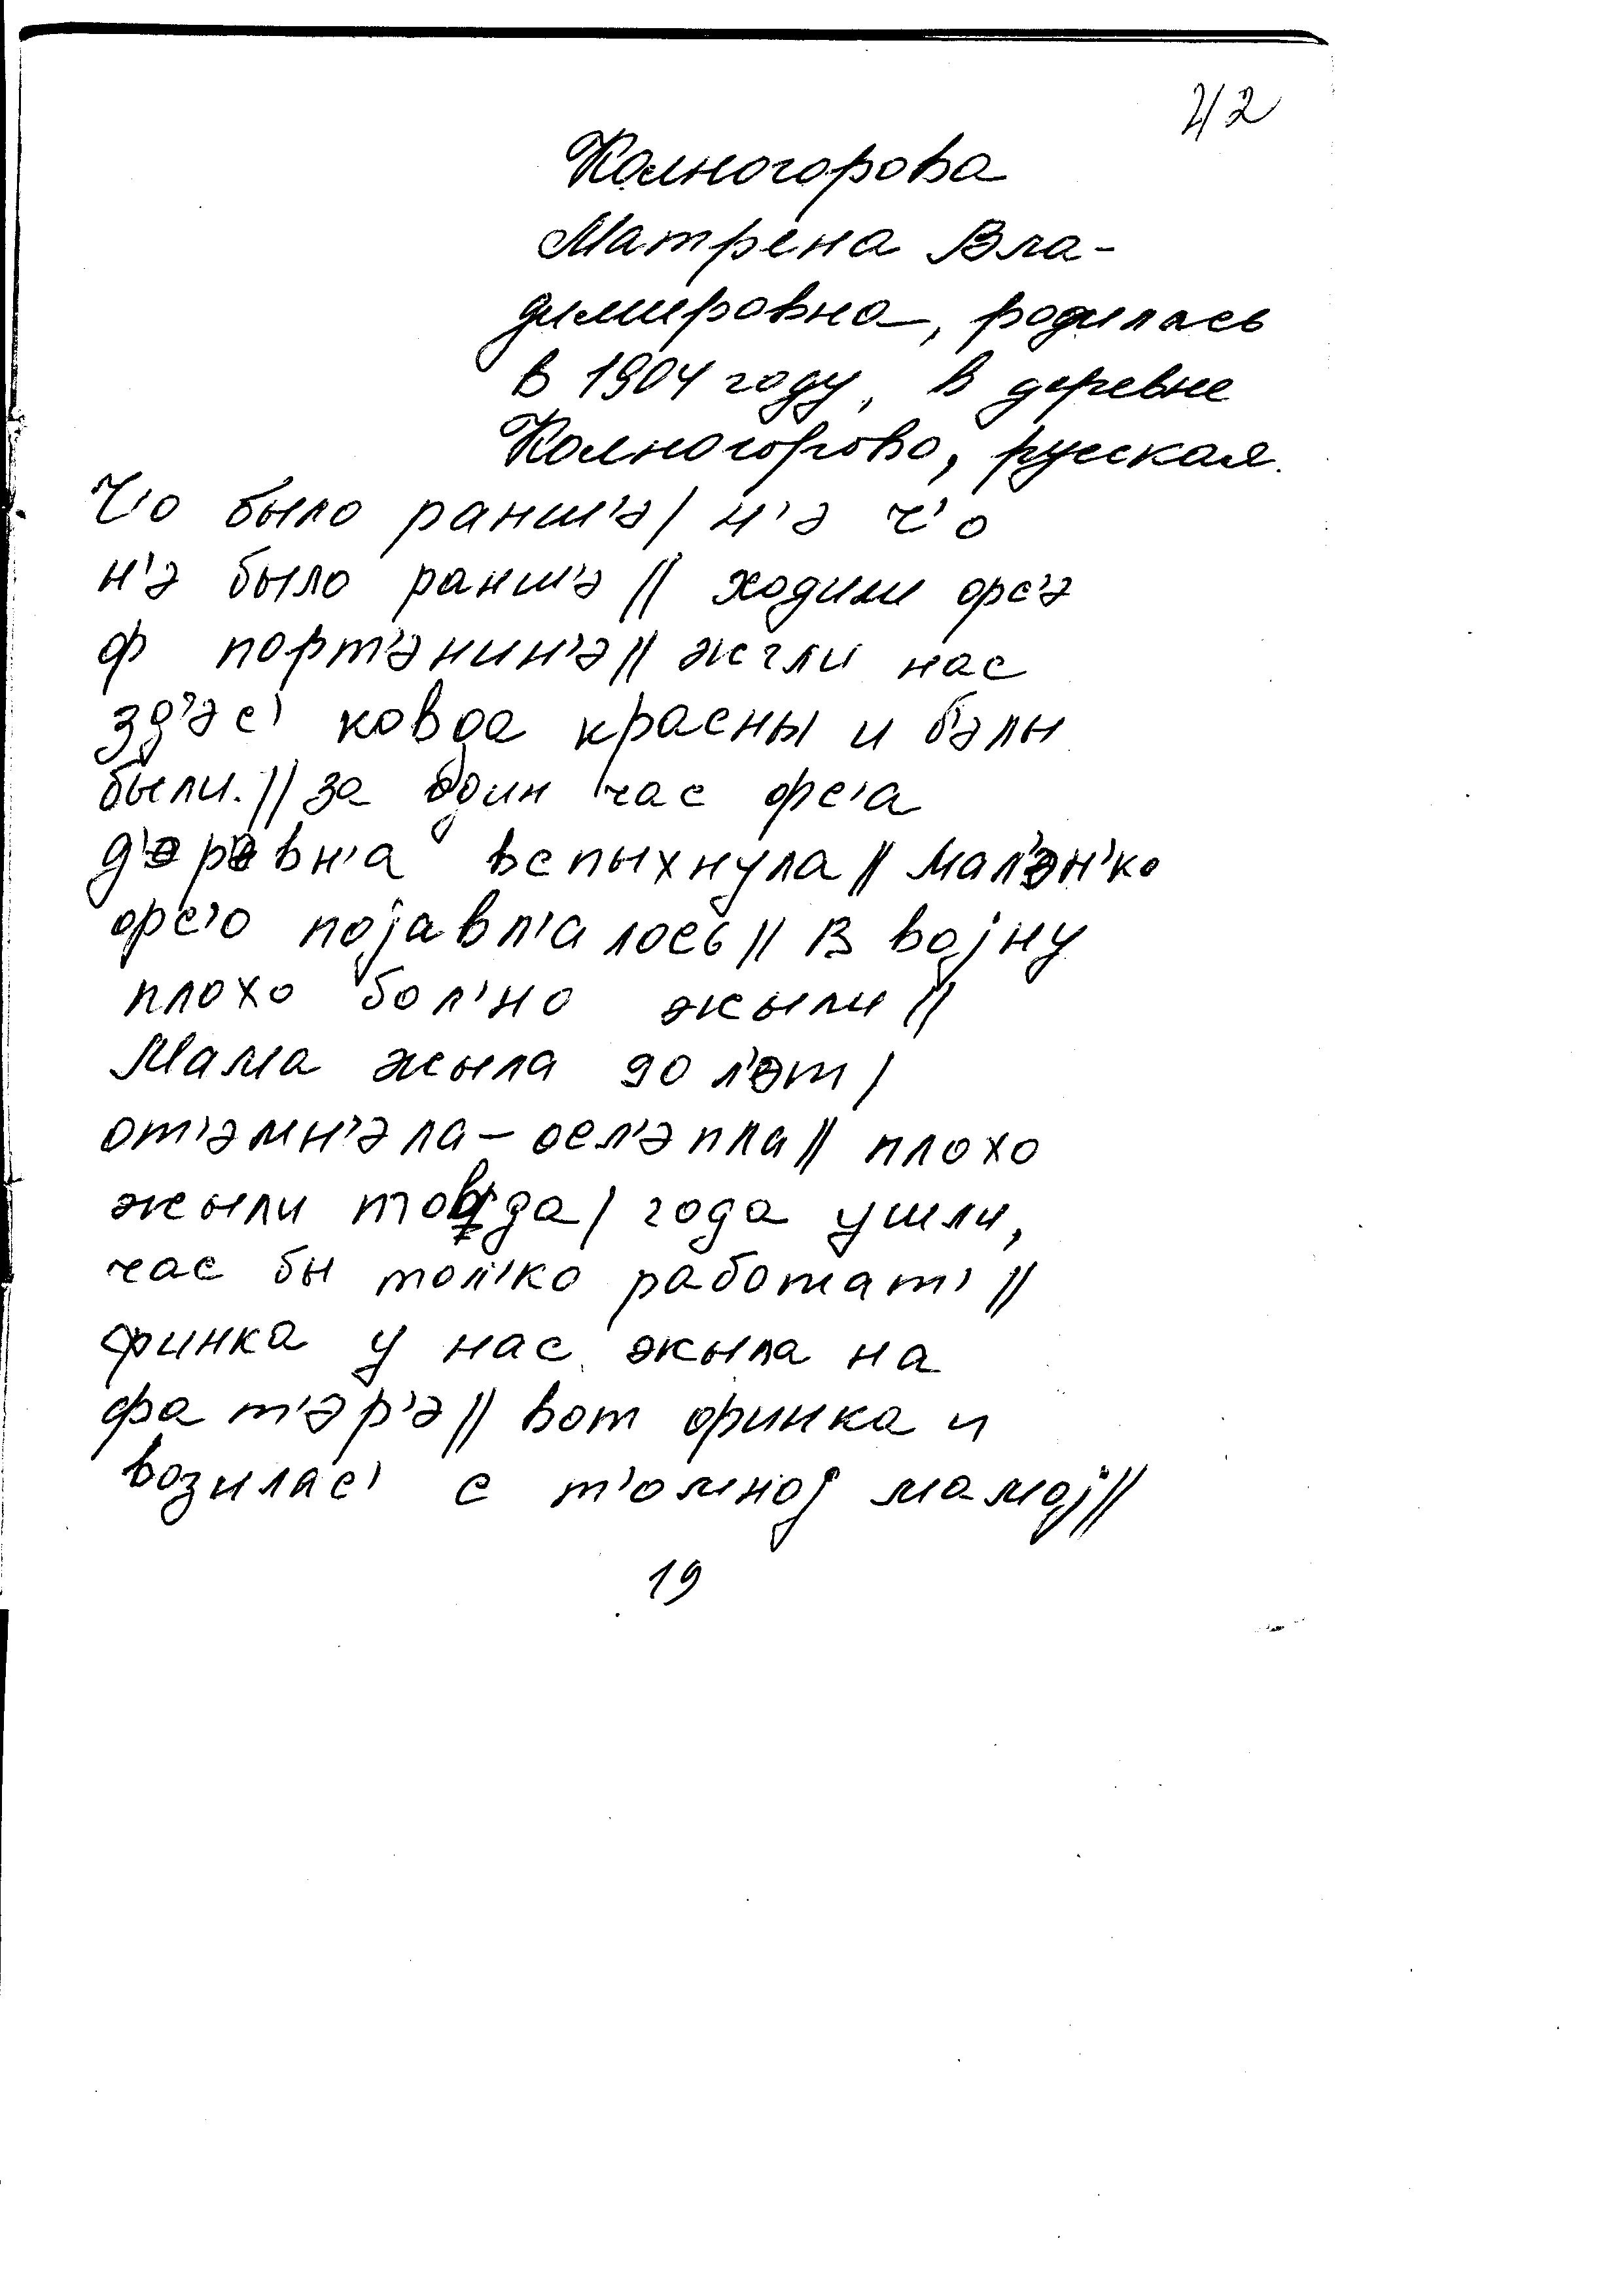 42
Колногорова
Матрена Вла-
димировна, родилась
в 1904 году, в деревне
Колногорово, русская.
Ч'о было ранш'э/ н'э ч'о
н'э было ранш'э // ходили фс'э
ф порт'энин'э // жгли нас
зд'эс' ковда красны и б'элы
были. // за один час фс'а
д'эрэвн'а вспыхнула // Мал'эн'ко
фс'о појавл'алось // В војну
плохо бол'но жыли //
Мама жыла 90 л'эт /
от'эмн'эла – осл'эпла // плохо
жыли товда / года ушли,
час бы тол'ко работат' //
финка у нас жыла на
фат'эр'э // вот финка и
возилас' с т'омној мамој //
19